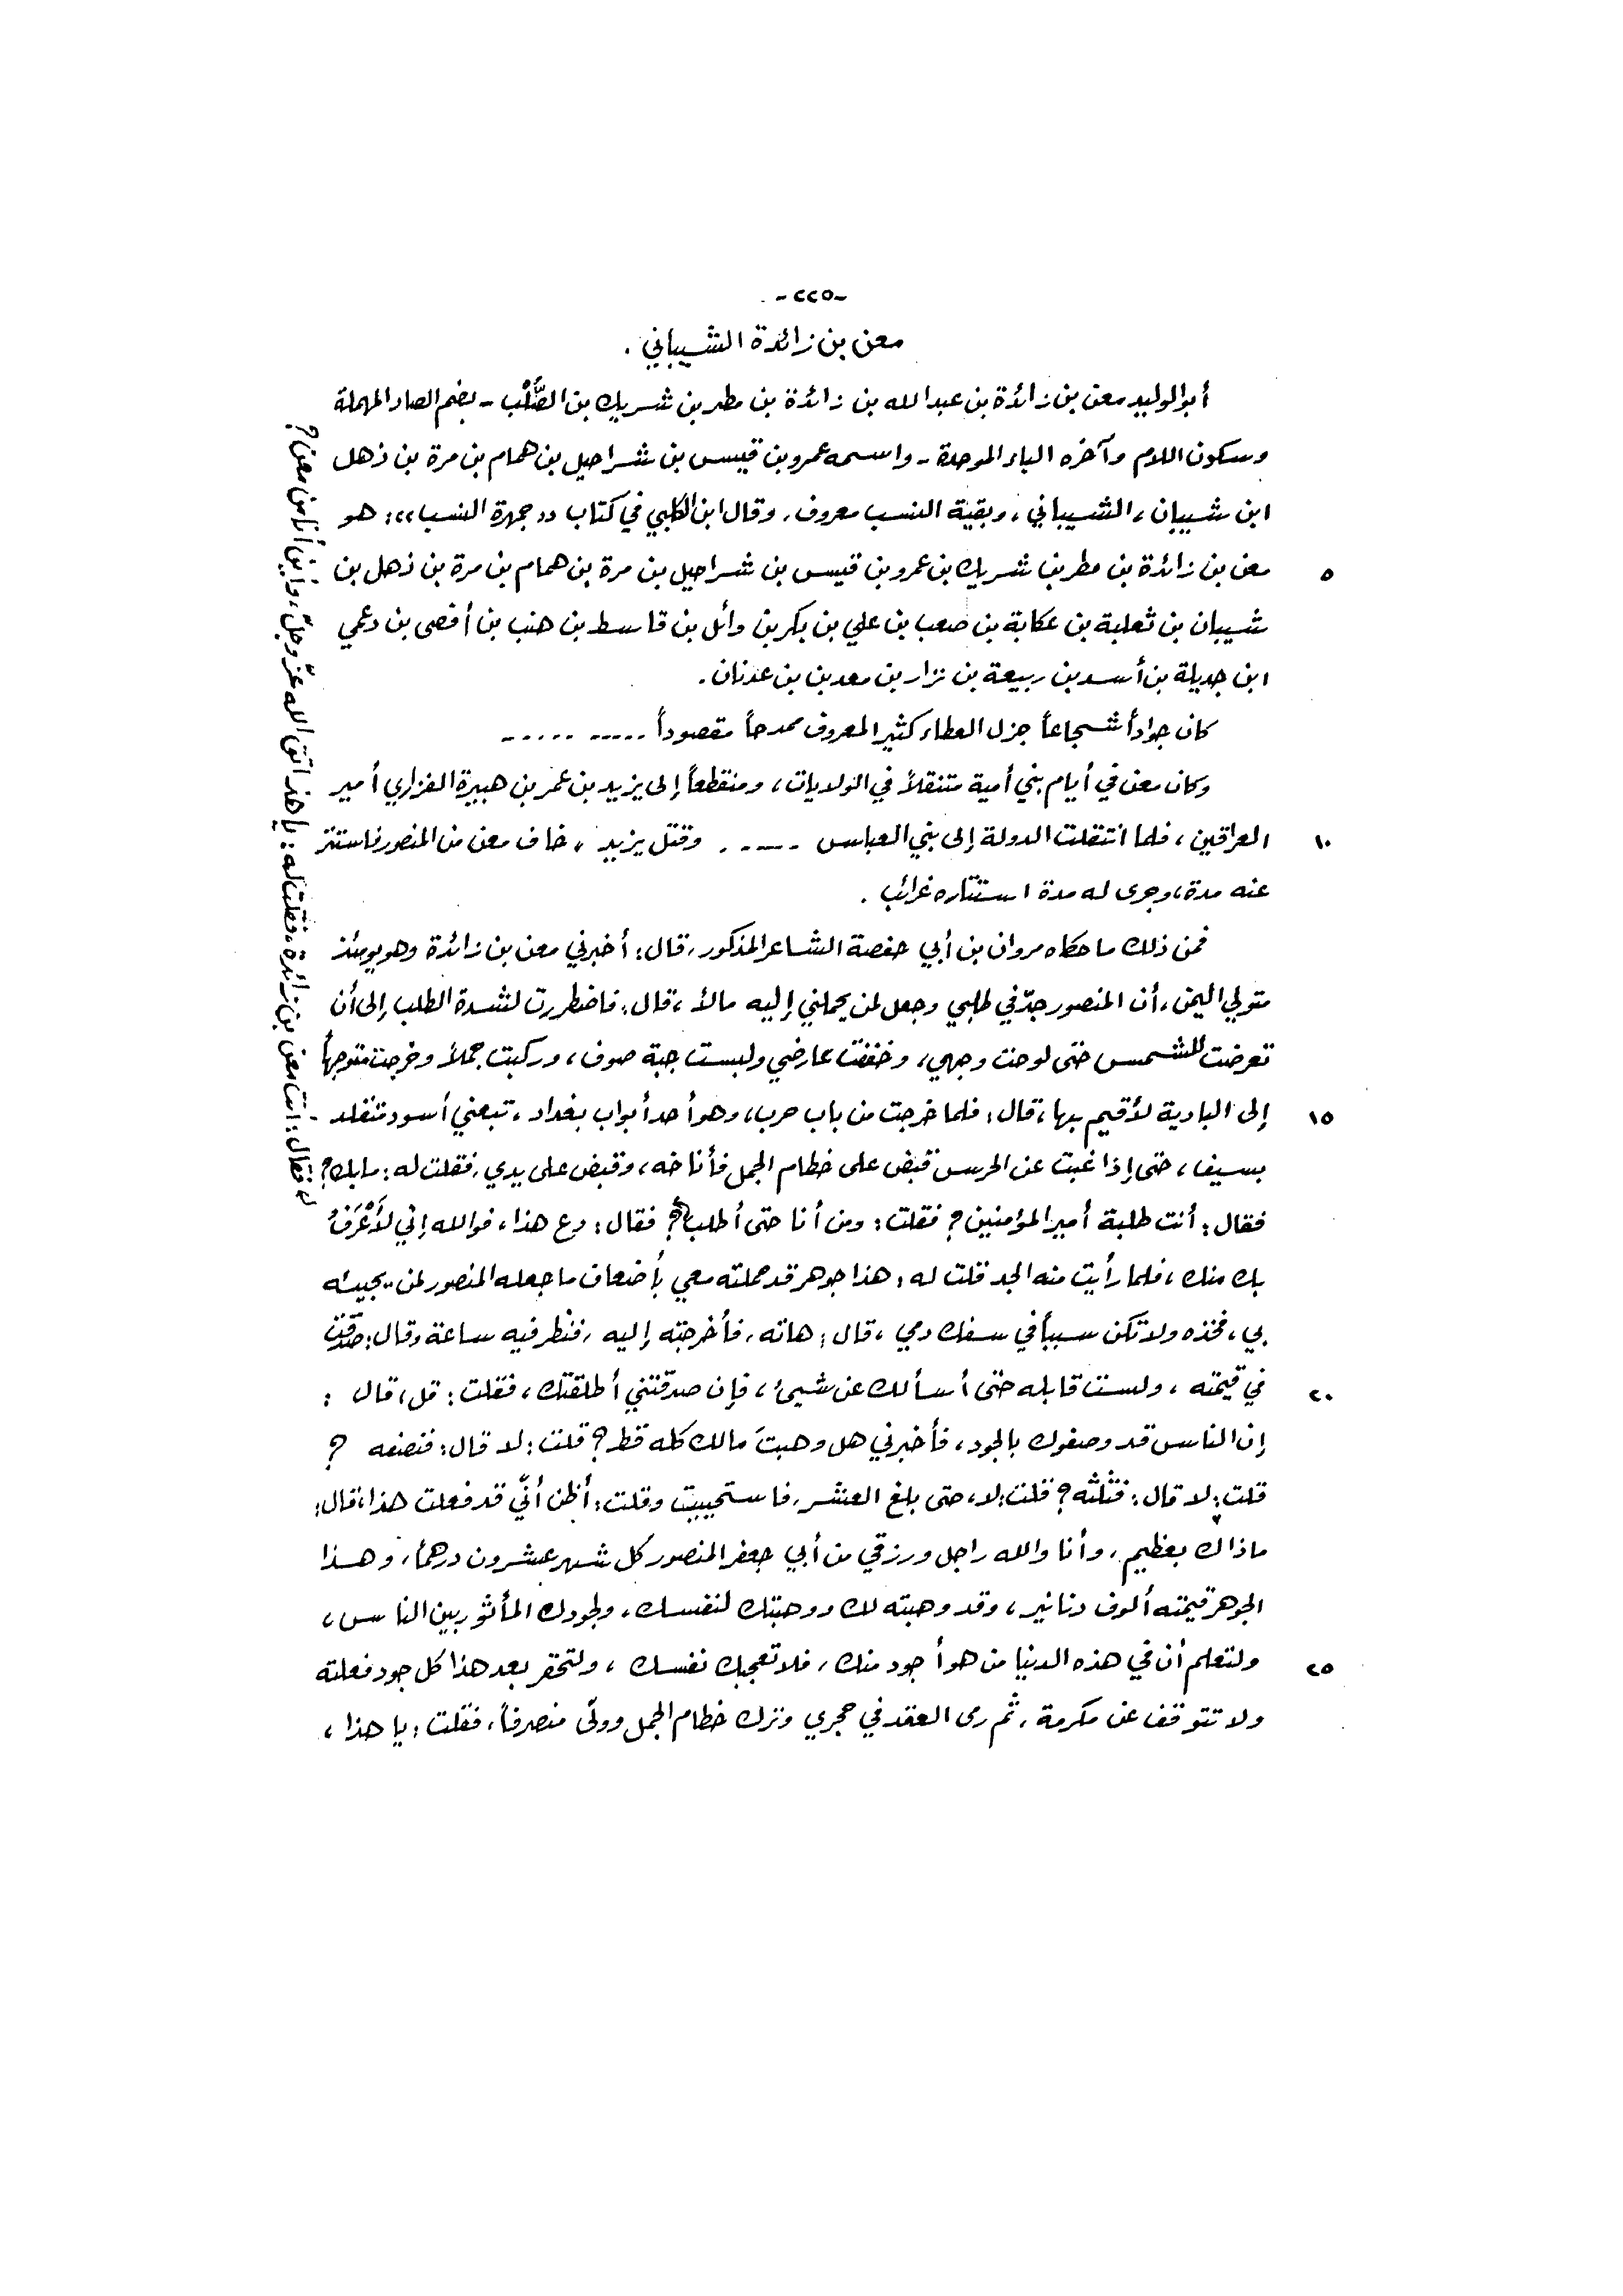 -٢٢٥-
معن بن زائدة الشيباني .
أبو الوليد معن بن زائدة بن عبد الله بن زائدة بن مطر بن شريك بن الصُّلْب - بضم الصاد المهملة
وسكون اللام وآخره الباء الموحدة - واسمه عمرو بن قيس بن شراحيل بن همام بن مرة بن ذهل
ابن شيبان ، الشيباني ، وبقية النسب معروف . وقال ابن الكلبي في كتاب ,, جمهرة النسب ،، : هو
٥ معن بن زائدة بن مطر بن شريك بن عمرو بن قيس بن شراحيل بن مرة بن همام بن مرة بن ذهل بن
شيبان بن ثعلبة بن عكابة بن صعب بن علي بن بكر بن وائل بن قاسط بن هنب بن أفصى بن دعمي
ابن جديلة بن أسد بن ربيعة بن نزار بن معد بن بن عدنان .
كان جواداً شجاعاً جزل العطاء كثير المعروف ممدحاً مقصوداً ..... .....
وكان معن في أيام بني أمية متنقلاً في الولايات ، ومنقطعاً إلى يزيد بن عمر بن هبيرة الفزاري أمير
١٠ العراقين ، فلما انتقلت الدولة إلى بني العباس ..... وقتل يزيد ، خاف معن من المنصور فاستتر
عنه مدة ، وجرى له مدة استتاره غرائب .
فمن ذلك ما حكاه مروان بن أبي حفصة الشاعر المذكور ، قال : أخبرني معن بن زائدة وهو يومئذ
متولي اليمن ، أن المنصور جدّ في طلبي وجعل لمن يحملني إليه مالاً ، قال : فاضطررت لشدة الطلب إلى أن
تعرضت للشمس حتى لوحت وجهي ، وخففت عارضي ولبست جبة صوف ، وركبت جملاً وخرجت متوجهاً
١٥ إلى البادية لأقيم بها ، قال : فلما خرجت من باب حرب ، وهو أحد أبواب بغداد ، تبعني أسود متقلد
بسيف ، حتى إذا غبت عن الحرس قبض على خطام الجمل فأناخه ، وقبض على يدي ، فقلت له : ما بك ؟
فقال : أنت طلبة أمير المؤمنين ؟ فقلت : ومن أنا حتى أطلب ؟ فقال : دع هذا ، فوالله إني لأَعْرَفُ
بك منك ، فلما رأيت منه الجد قلت له : هذا جوهر قد حملته معي بأضعاف ما جعله المنصور لمن يجيئه
بي ، فخذه ولا تكن سبباً في سفك دمي ، قال : هاته ، فأخرجته إليه ، فنظر فيه ساعة وقال : صدقت
٢٠ في قيمته ، ولست قابله حتى أسألك عن شيئ ، فإن صدقتني أطلقتك ، فقلت : قل ، قال :
إن الناس قد وصفوك بالجود ، فأخبرني هل وهبتَ مالك كله قط ؟ قلت : لا قال : فنصفه ؟
قلت : لا قال : فثلثه ؟ قلت : لا ، حتى بلغ العشر ، فاستحييت وقلت : أظن أنّي قد فعلت هذا ، قال :
ماذاك بعظيم ، وأنا والله راجل ورزقي من أبي جعفر المنصور كل شهر عشرون درهماً ، وهذا
الجوهر قيمته ألوف دنانير ، وقد وهبته لك ووهبتك لنفسك ، ولجودك المأثور بين الناس ،
٢٥ ولتعلم أن في هذه الدنيا من هو أجود منك ، فلا تعجبك نفسك ، ولتحقر بعد هذا كل جود فعلته
ولا تتوقف عن مكرمة ، ثم رمى العقد في حجري وترك خطام الجمل وولّى منصرفاً ، فقلت : يا هذا ،
فقال : أنت معن بن زائدة ، فقلت له : يا هذا اتق الله عزّ وجلّ ، وأين أنا من معن ؟